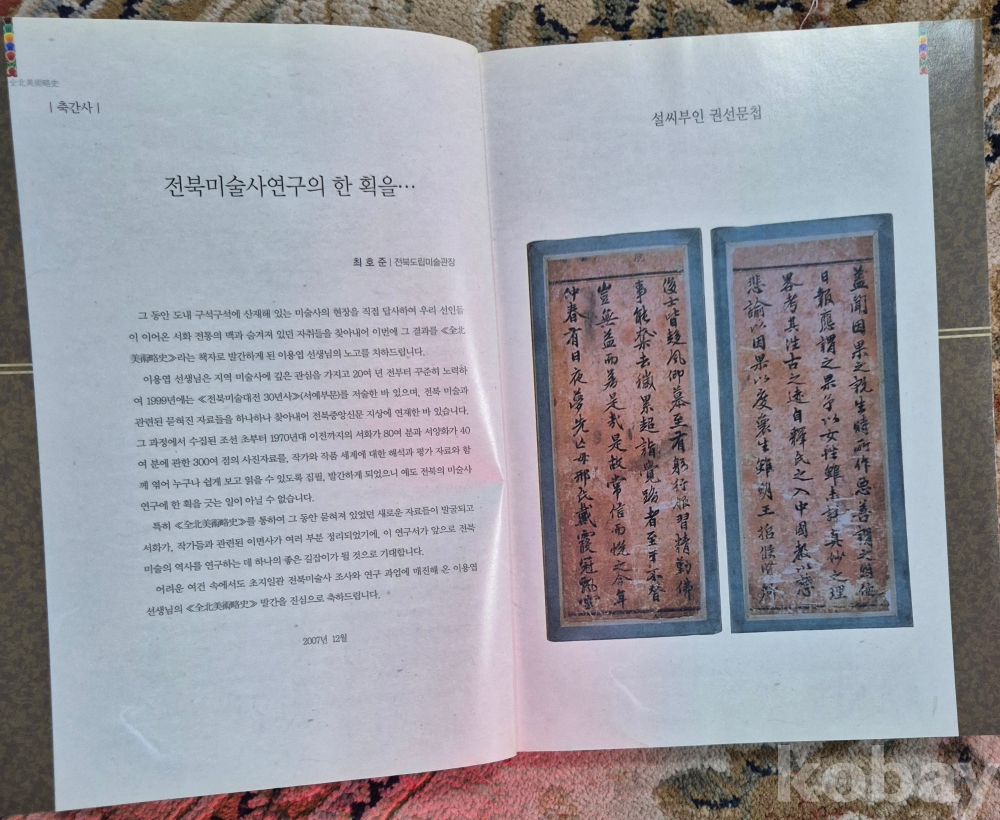 全北美術略史
| 축간사 |
전북미술사연구의 한 획을…
최 호 준 | 전북도립미술관장
그 동안 도내 구석구석에 산재해 있는 미술사의 현장을 직접 답사하여 우리 선인들
이 이어온 서화 전통의 맥과 숨겨져 있던 자취들을 찾아내어 이번에 그 결과를 《全北
美術略史》라는 책자로 발간하게 된 이용엽 선생님의 노고를 치하드립니다.
이용엽 선생님은 지역 미술사에 깊은 관심을 가지고 20여 년 전부터 꾸준히 노력하
여 1999년에는 《전북미술대전 30년사》(서예부문)를 저술한 바 있으며, 전북 미술과
관련된 묻혀진 자료들을 하나하나 찾아내어 전북중앙신문 지상에 연재한 바 있습니다.
그 과정에서 수집된 조선 초부터 1970년대 이전까지의 서화가 80여 분과 서양화가 40
여 분에 관한 300여 점의 사진자료를, 작가와 작품 세계에 대한 해석과 평가 자료와 함
께 엮어 누구나 쉽게 보고 읽을 수 있도록 집필, 발간하게 되었으니 예도 전북의 미술사
연구에 한 획을 긋는 일이 아닐 수 없습니다.
특히 《全北美術略史》를 통하여 그 동안 묻혀져 있었던 새로운 자료들이 발굴되고
서화가, 작가들과 관련된 이면사가 여러 부분 정리되었기에, 이 연구서가 앞으로 전북
미술의 역사를 연구하는 데 하나의 좋은 길잡이가 될 것으로 기대합니다.
어려운 여건 속에서도 초지일관 전북미술사 조사와 연구 과업에 매진해 온 이용엽
선생님의 《全北美術略史》 발간을 진심으로 축하드립니다.
2007년 12월
설씨부인 권선문첩
盖聞因果之說生時所作惡善謂之
日報應謂之果予以女性雖未詳眞妙之理
畧考其往古之迹自釋氏之入中國敎以慈
悲諭以因果以度衆生雖明王
後士皆趍風仰慕至有躬行服習精勤佛
事能棄去儀累超詣覺路者至于不啻
豈無益而若是哉是故常信而悅之今年
仲春有日夜夢先亡母邢氏戴霞冠飄
kobay